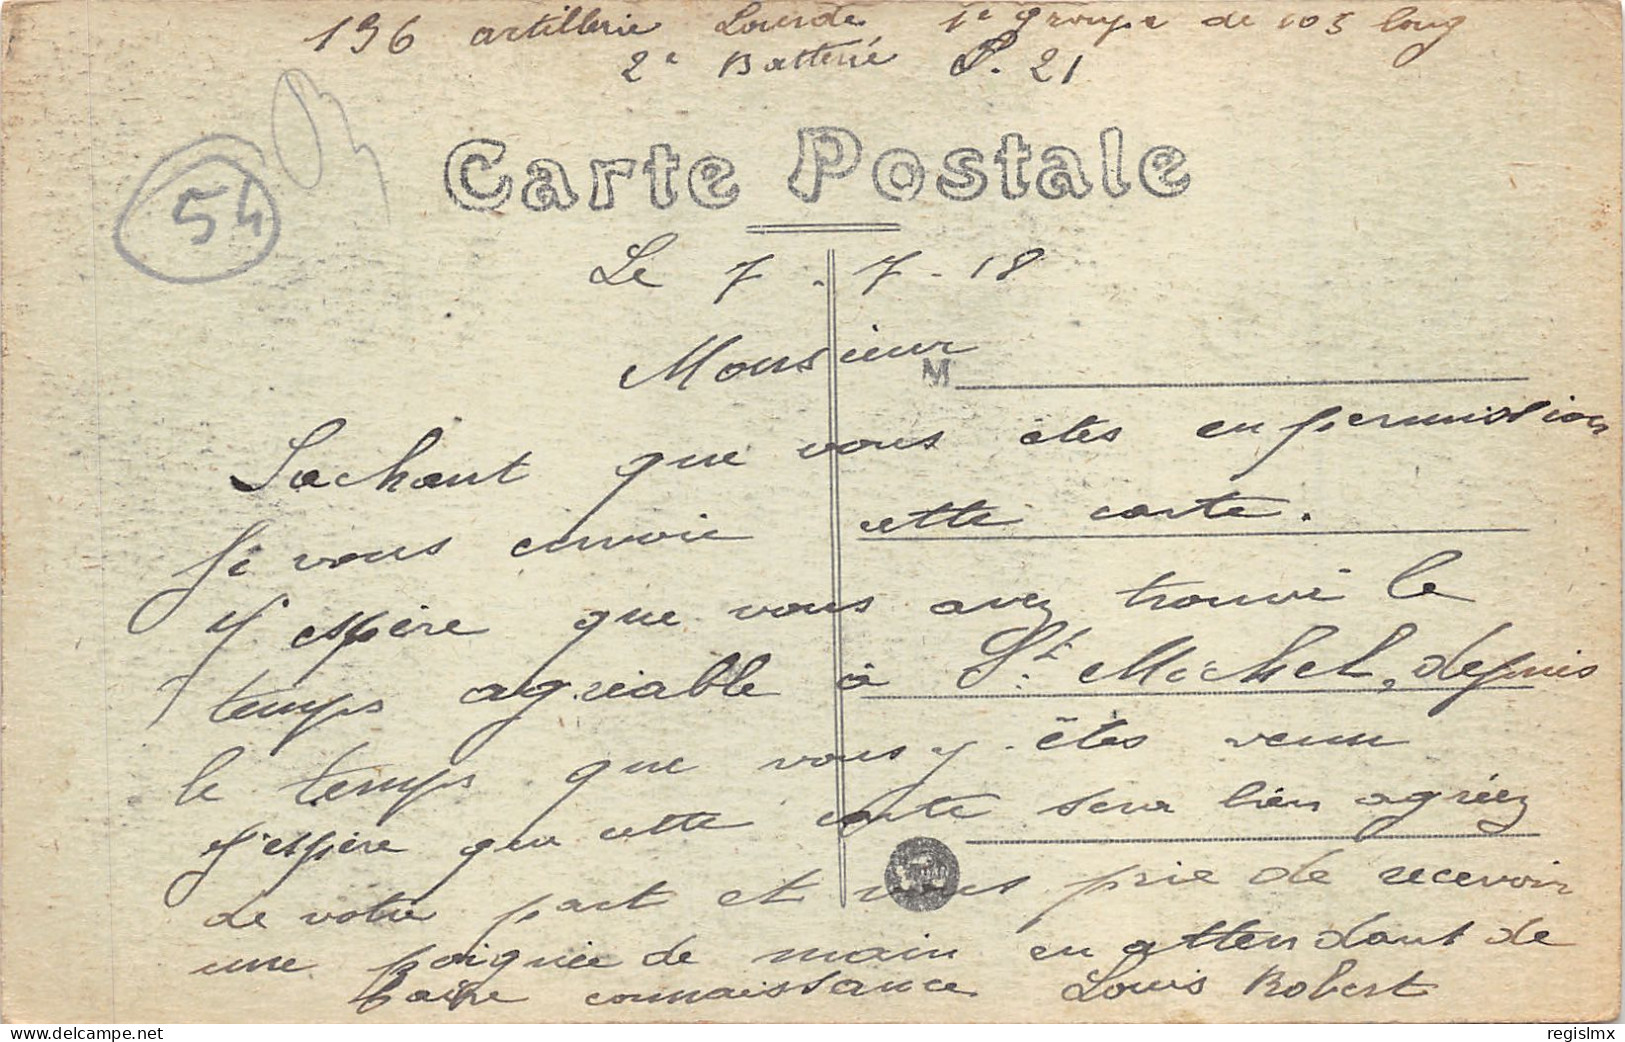 196 artillerie Lourde 1e groupe de 105 long
2e Batterie S. 21
54
Carte Postale
Le 7.7.18
Monsieur
M
Sachant que vous êtes en permission
je vous envoie cette carte.
J'espère que vous avez trouvé le
temps agréable à St. Michel, depuis
le temps que vous y êtes venu
J'espère que cette carte sera bien agréez
de votre part et vous prie de recevoir
une poignée de main en attendant de
faire connaissance Louis Robert
delcampe.net
regislmx